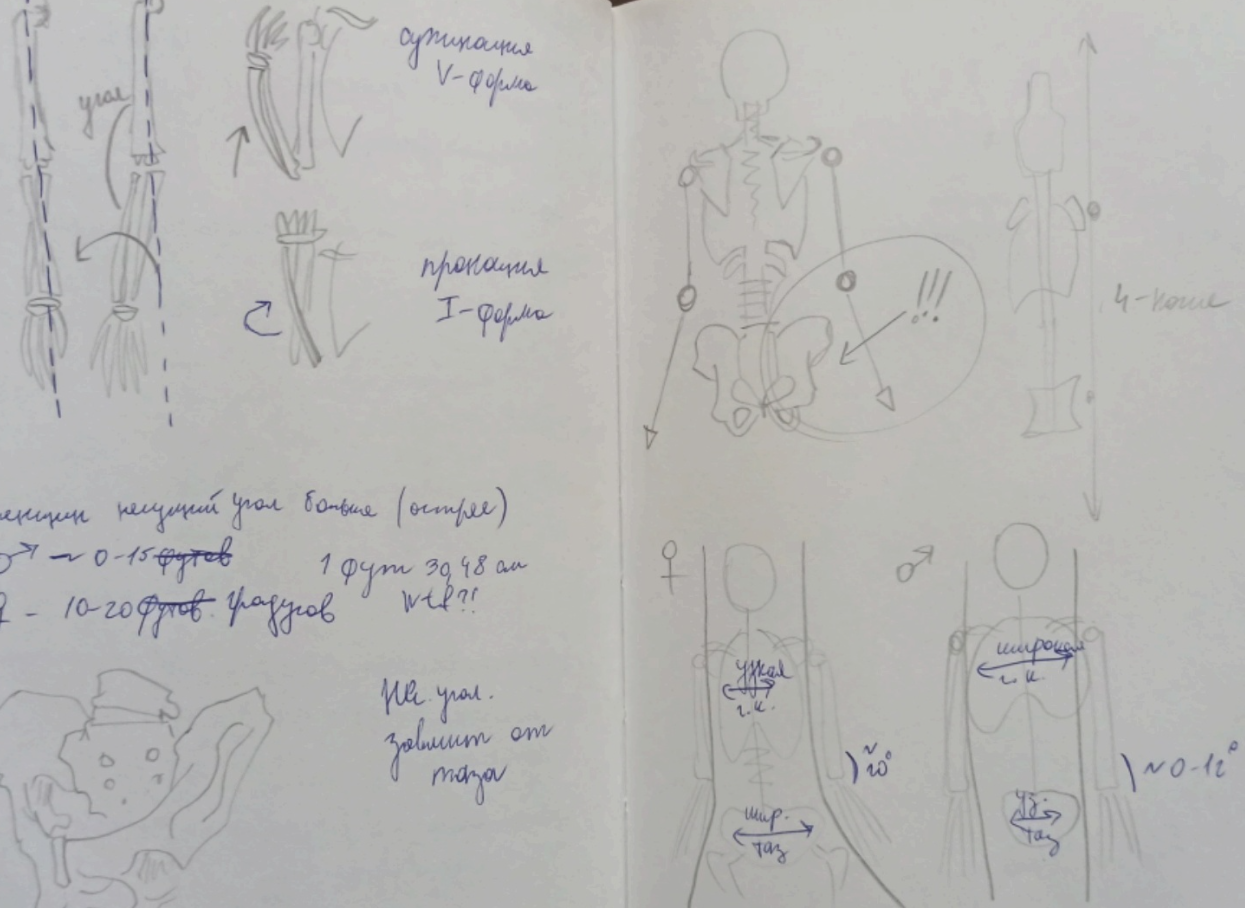 угол
супинация
V-форма
пронация
I-форма
енщин несущий угол больше (острее)
♂ ~ 0-15 футов
1 фут 30,48 см
♀ - 10-20 футов. градусов
wtf?!
Не. угол.
зависит от
таза
!!!
♀
узкая
г.к.
~20°
шир.
таз
♂
широкая
г.к.
~0-12°
уз.
таз